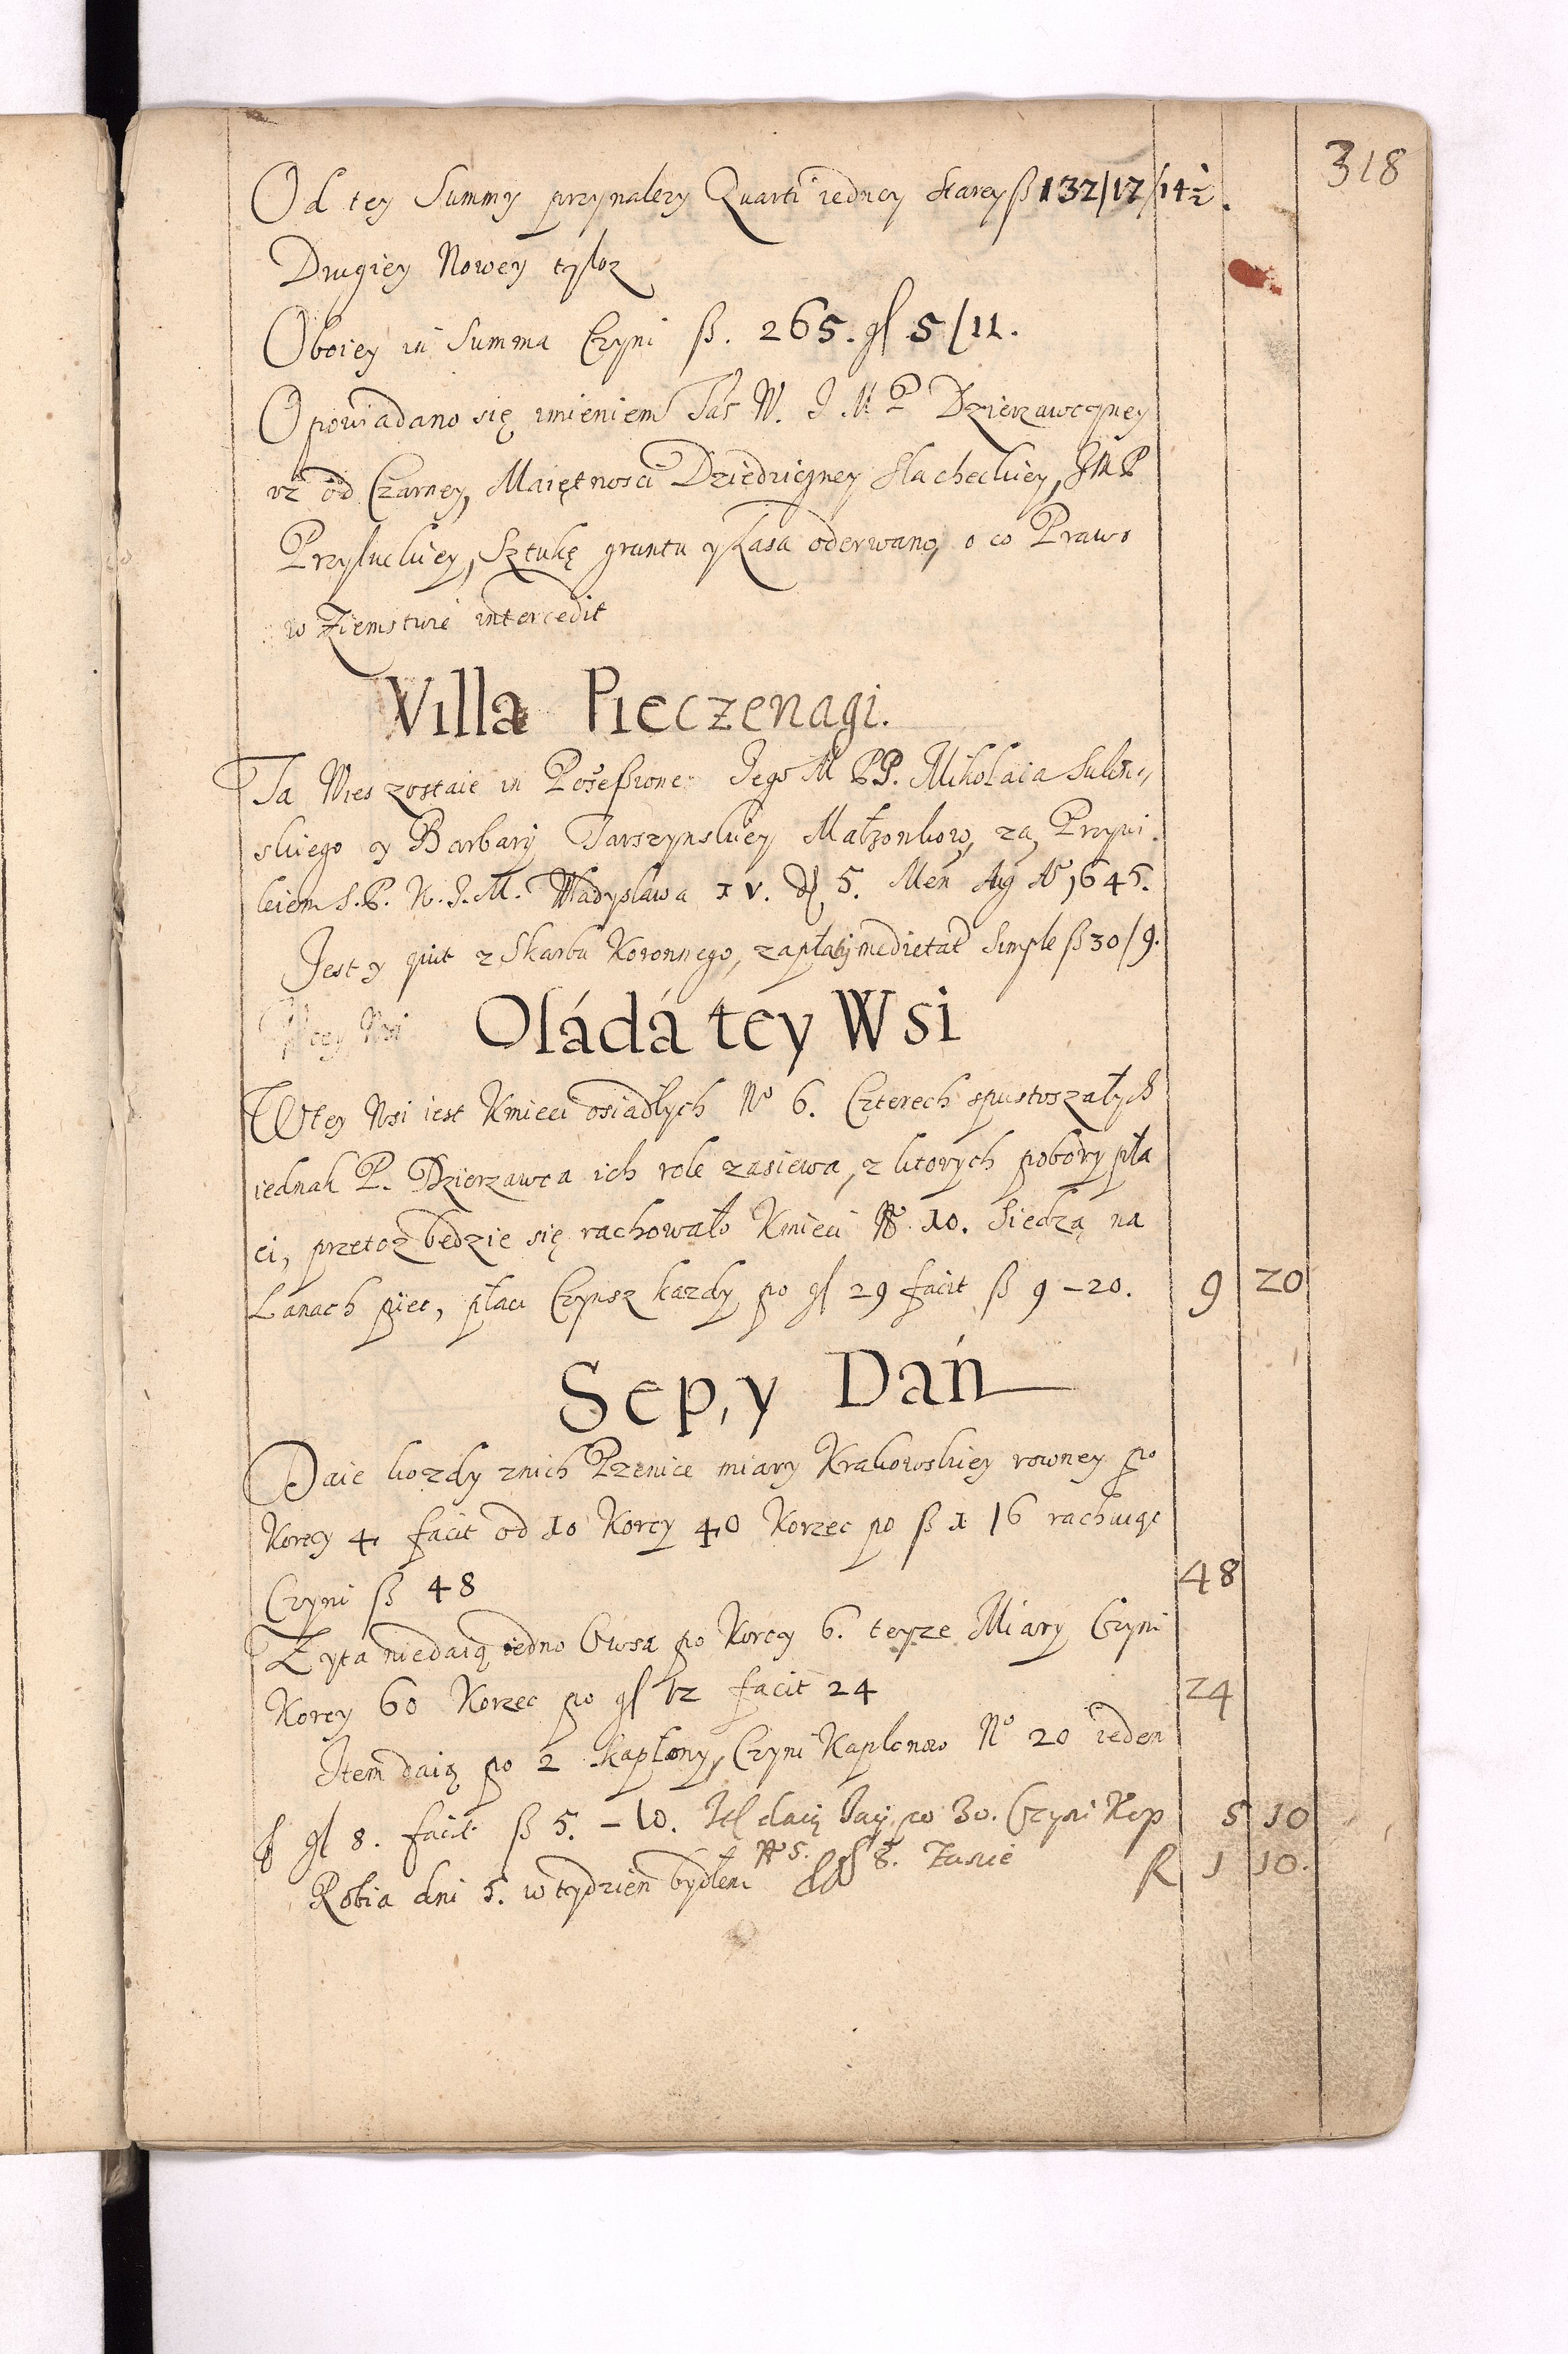 318
Od tey Summy przynalezy Quarti iedney Starey ß 132/17/14½.
Drugiey Nowey tyloz
Oboiey in Summa Czyni ß. 265. gl 5/11.
Opowiadano się imieniem Jas W. J. M P Dzierzawczyney
iz od Czarney, Maiętnosci Dziedziczney Slacheckiey, JMP
Przyłuckiey, Sztukę gruntu y Lasa oderwano, o co Prawo
w Ziemstwie intercedit
Villa Pieczenagi.
Ta Wies zostaie in Poseßione Jego M PP. Mikolaia Sulin,,
skiego y Barbary Jarszynskiey Małzonkow, za Przywi.
leiem S.P. K.J.M. Władysława IV. D 5. Men Aug Ao 1645.
Jest y quit z Skarbu Koronnego, zapłaty medietat Simple ß 30/9.
tey Wsi
Osádá tey Wsi
W tey Wsi iest Kmieci osiadłych No 6. Czterech spustoszałych
iednak P. Dzierzawca ich role zasiewa, z ktorych pobory pła
ci, przetoz będzie się rachowało Kmieci No 10. Siedzą na
Lanach pięc, płaci Czynsz kazdy po gl 29 facit ß 9 – 20. 9 20
Sep, y Dań
Daie kozdy znich Pzenice miary Krakowskiey rowney po
Korcy 4 facit od 10 Korcy 40 Korzec po ß 1 16 rachuiąc
Czyni ß 48 48
Zyta niedaią iedno Owsa po Korcy 6. teyze Miary Czyni
Korcy 60 Korzec po gl 12 facit 24 24
Item daią po 2 Kapłony, Czyni Kapłonow No 20 ieden
p gl 8. facit ß 5. – 10. It daią Jay po 30. Czyni Kop 5 10
No 5. gl 8. facit ß 1 10.
Robia dni 5. w tydzien bydłem